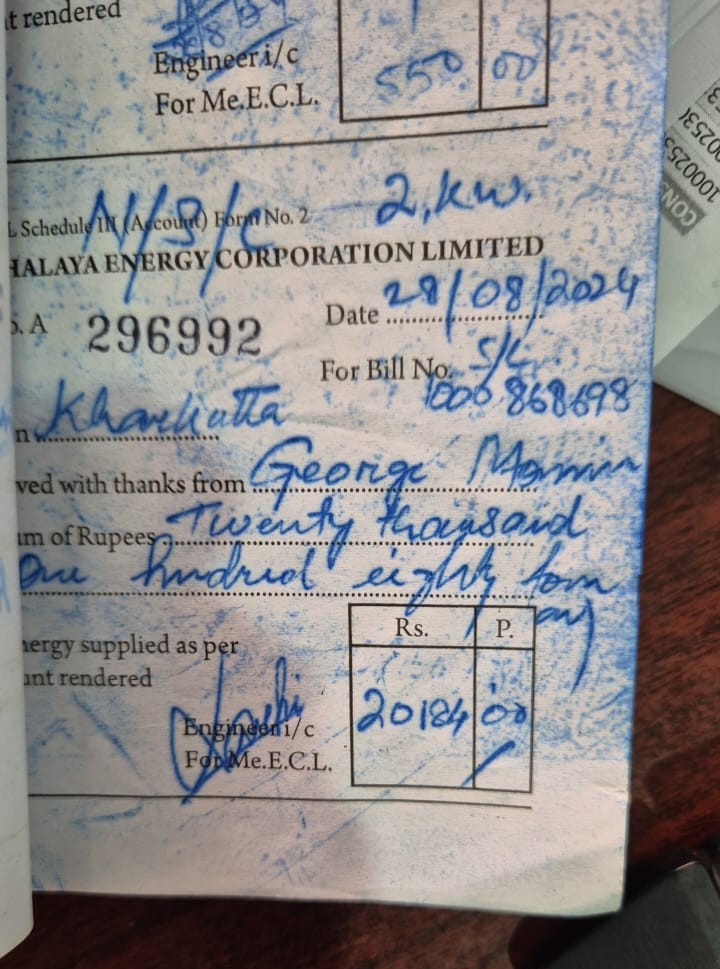 t rendered
Engineer i/c
For Me.E.C.L.
550 00
L Schedule III (Account) Form No. 2
N/S/C
2.kw.
HALAYA ENERGY CORPORATION LIMITED
o. A 296992
Date 28/08/2024
For Bill No. S/L
1000 868698
n Kharkutta
ved with thanks from George Momin
um of Rupees Twenty thousand
One hundred eighty four
only
Rs. P.
nergy supplied as per
unt rendered
20184 00
Engineer i/c
For Me.E.C.L.
CON
10002553